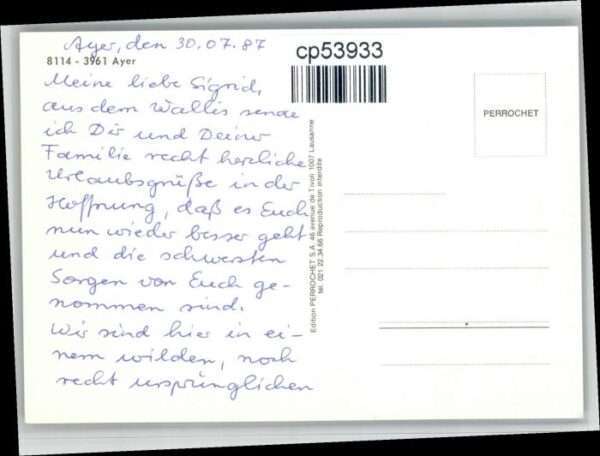 Ayer, den 30.07.87
8114 - 3961 Ayer
cp53933
Meine liebe Sigrid,
aus dem Wallis sende
ich Dir und Deiner
Familie recht herzliche
Urlaubsgrüße in der
Hoffnung, daß es Euch
nun wieder besser geht
und die schwersten
Sorgen von Euch ge-
nommen sind.
Wir sind hier in ei-
nem wilden, noch
recht ursprünglichen
Edition PERROCHET S.A. 46 avenue de Tivoli 1007 Lausanne
Tél. 021 22 34 66 Reproduction interdite
PERROCHET